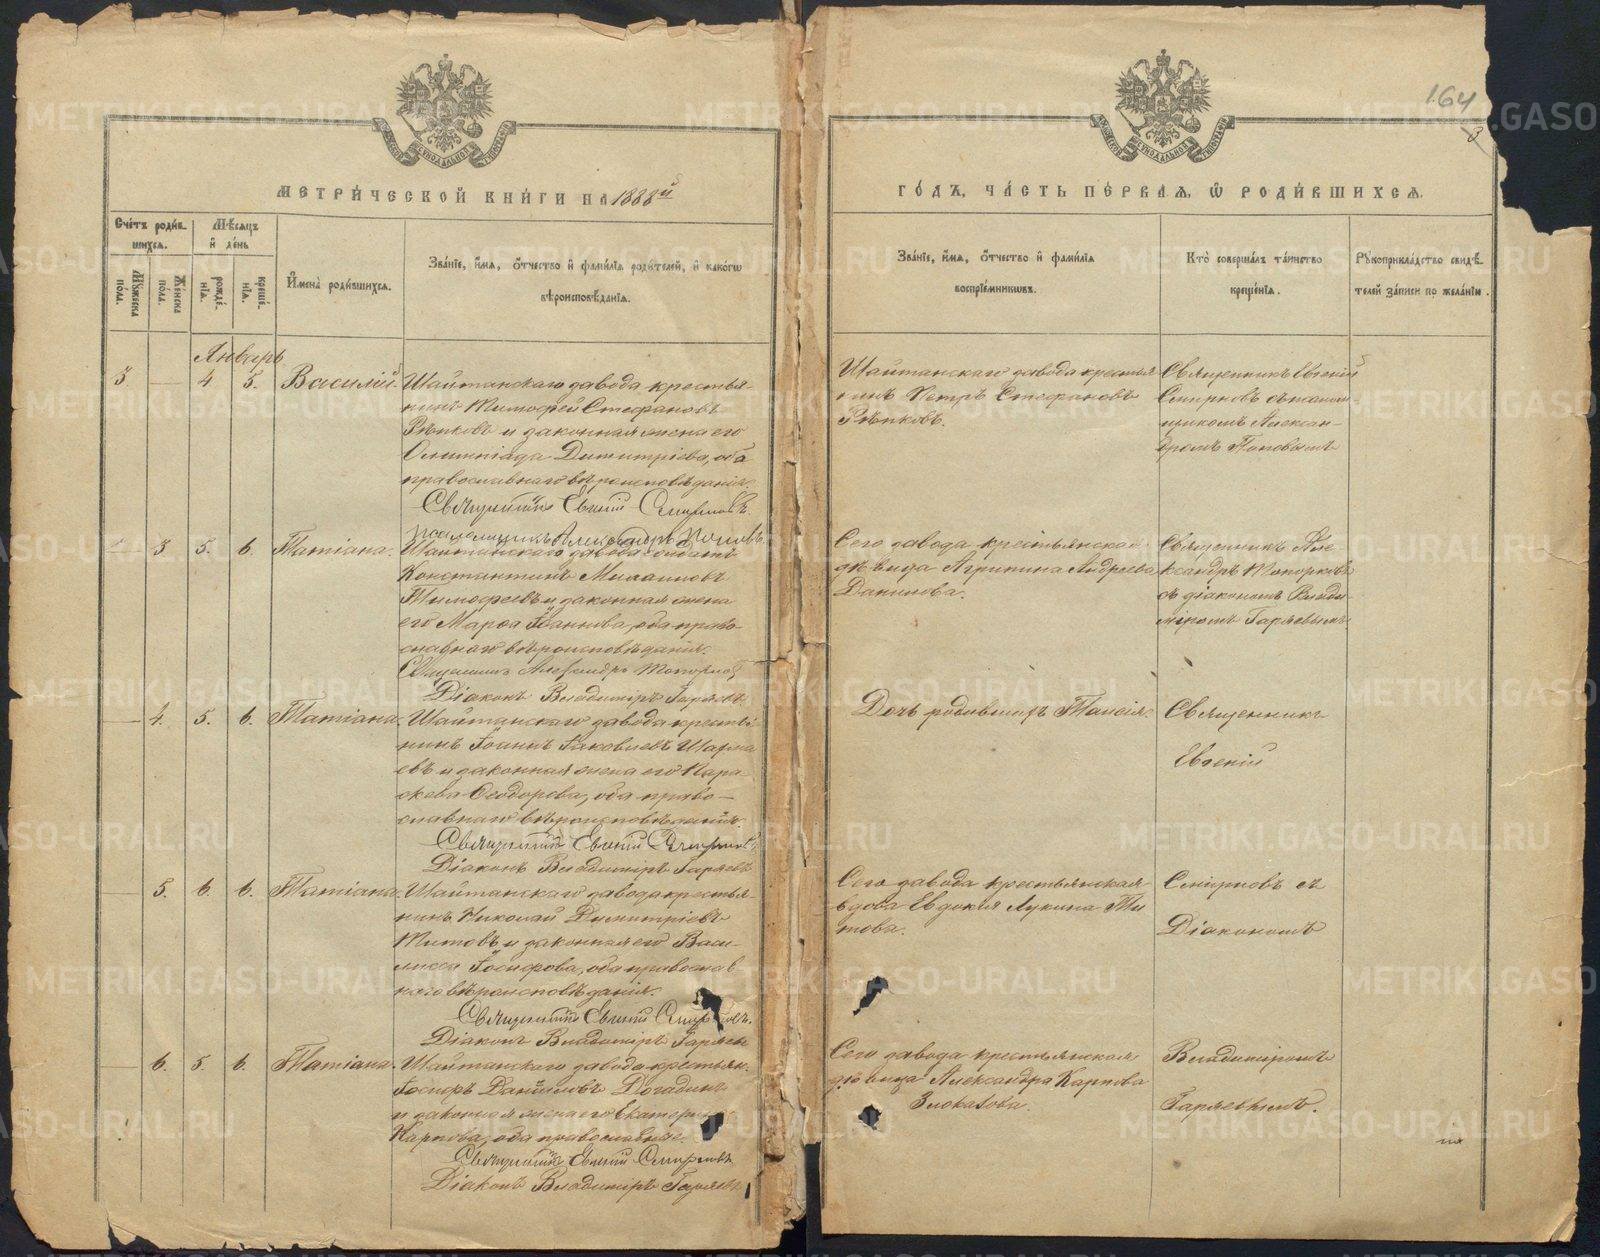 164
3
МЕТРИ́ЧЕСКОЙ КНИ́ГИ НА 1888й
ГО́ДЪ, ЧА́СТЬ ПЕ́РВАѦ, Ѡ РОДИ́ВШИХСѦ.
Сче́тъ роди́в-
шихсѧ.
Мѣ́сѧцъ
и де́нь
Мꙋ́жеска
по́ла.
Же́нска
по́ла.
рожде́-
нїѧ.
креще́-
нїѧ.
И҆мена̀ роди́вшихсѧ.
Зва́нїе, и҆́мѧ, о҆́тчество и҆ фами́лїѧ роди́телей, и҆ како́гѡ
вѣроисповѣ́данїѧ.
Зва́нїе, и҆́мѧ, о҆́тчество и҆ фами́лїѧ
воспрїе́мникѡвъ.
Кто̀ соверша́лъ та́инство
креще́нїѧ.
Рꙋкоприкла́дство свидѣ́-
телей за́писи по жела́нїю.
Январь
3 — 4 5. Василій.
Шайтанскаго завода крестья-
нинъ Тимофей Стефановъ
Рѣпковъ и законная жена его
Олимпіада Димитріева, оба
православнаго вѣроисповѣданія.
Священникъ Евгеній Смирновъ.
Псаломщикъ Александръ Поповъ.
Шайтанскаго завода крестья
нинъ Петръ Стефановъ
Рѣпковъ.
Священникъ Евгеній
Смирновъ съ псалом-
щикомъ Алексан-
дромъ Поповымъ
— 3 5. 6. Татіана.
Шайтанскаго завода солдатъ
Константинъ
Тимофеевъ и законная жена
его Марѳа Іоаннова, оба право-
славнаго вѣроисповѣданія.
Священникъ Александръ Топорковъ
Діаконъ Владиміръ Гаряевъ
Сего завода крестьянская
дѣвица Агрипина Андреева
Данилова.
Священникъ Але-
ксандръ Топорковъ
съ діакономъ Влади-
міромъ Гаряевымъ
— 4. 5. 6. Татіана.
Шайтанскаго завода крестья-
нинъ Іоаннъ Іаковлевъ Шарма
евъ и законная жена его Пара-
скева Ѳеодорова, оба право-
славнаго вѣроисповѣданія.
Священникъ Евгеній Смирновъ
Діаконъ Владиміръ Гаряевъ
Дочь родившихъ Таисія.
Священникъ
Евгеній
— 5. 6. 6. Татіана.
Шайтанскаго завода крестья-
нинъ Николай Димитріевъ
Титовъ и законная его Васи-
лисса Іосифова, оба православ-
наго вѣроисповѣданія.
Священникъ Евгеній Смирновъ.
Діаконъ Владиміръ Гаряевъ
Сего завода крестьянская
вдова Евдокія Лукина Ти
това.
Смирновъ съ
Діакономъ
— 6. 5 6. Татіана.
Шайтанскаго завода крестьян.
Іосифъ Даніиловъ Догадинъ
и законная жена его Екатерина
Карпова, оба православные.
Священникъ Евгеній Смирновъ
Діаконъ Владиміръ Гаряевъ
Сего завода крестьянская
дѣвица Александра Карпова
Злоказова.
Владиміромъ
Гаряевымъ.
METRIKI.GASO-URAL.RU